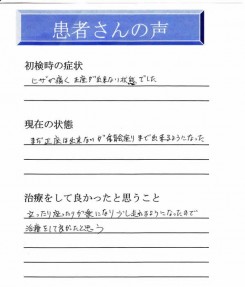 患者さんの声
初検時の症状
ヒザが痛く正座が出来ない状態でした
現在の状態
まだ正座は出来ないが体育会座りまで出来るようになった
治療をして良かったと思うこと
立ったり座ったりが楽になり少し走れるようになったので
治療をして良かったと思う